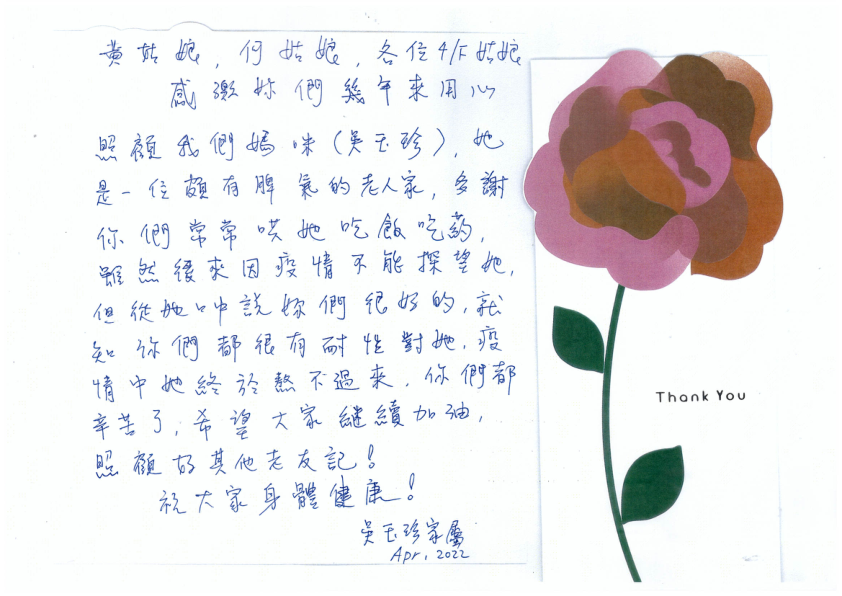 黃姑娘，何姑娘，各位4/F姑娘
感激妳們幾年來用心
照顧我們媽咪(吳玉珍)，她
是一位頗有脾氣的老人家，多謝
你們常常哄她吃飯吃药，
雖然後來因疫情不能探望她，
但從她口中說妳們很好的，就
知你們都很有耐性對她，疫
情中她終於熬不過來，你們都
辛苦了，希望大家継續加油，
照顧好其他老友記！
祝大家身體健康！
吳玉珍家屬
Apr, 2022
Thank You